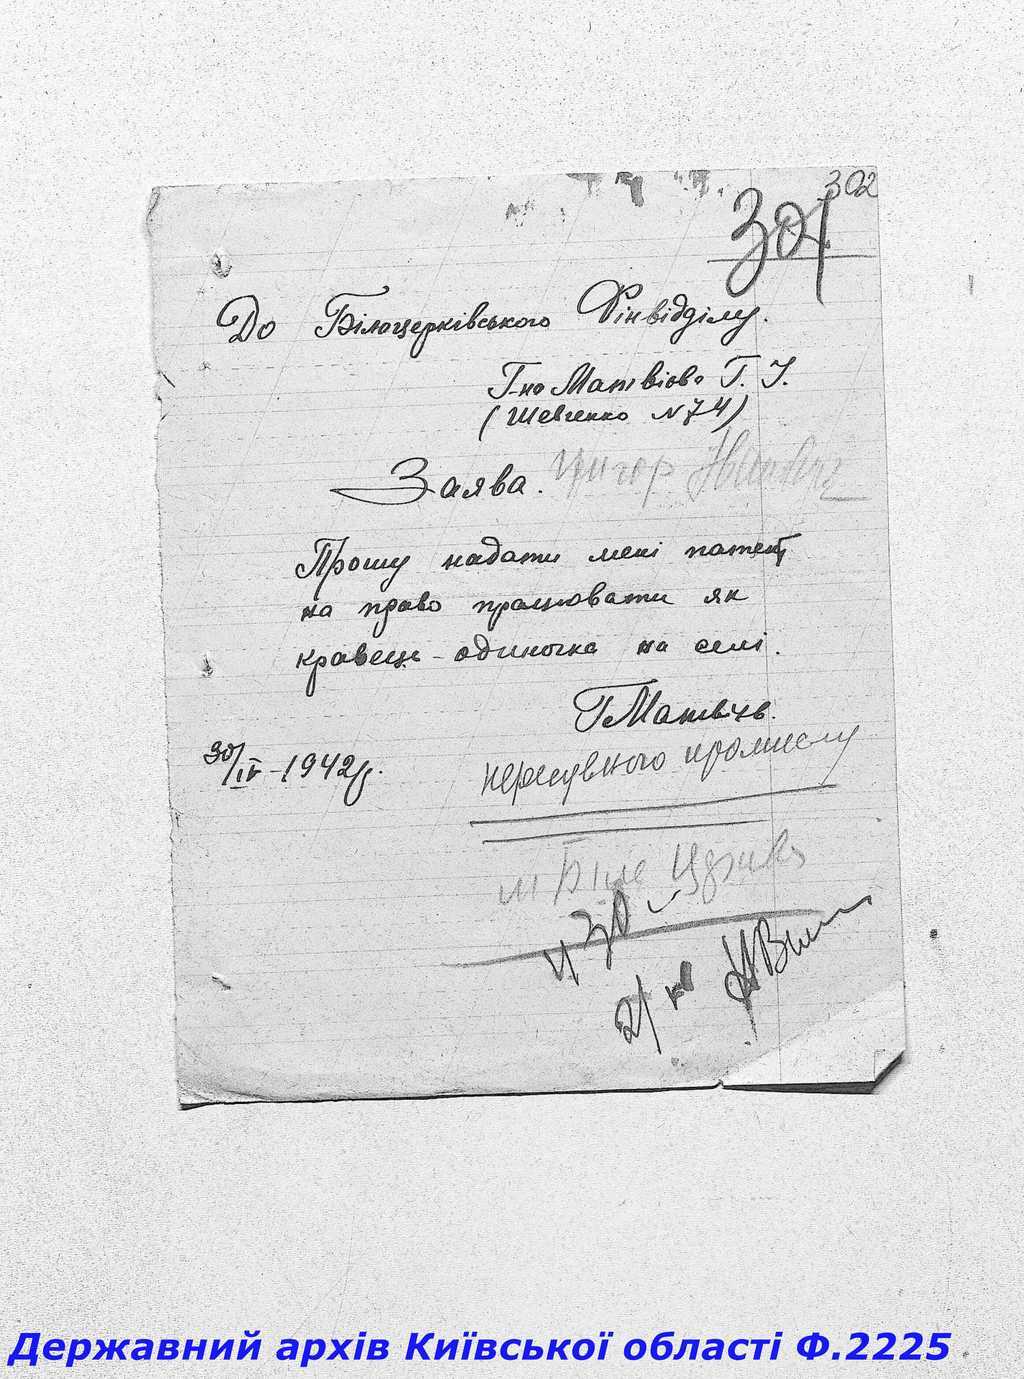 302
301
До Білоцерківського Фінвідділу.
Г-на Матвієва Г. І.
(Шевченко N 74)
Заява.
Григор Іванович
Прошу надати мені патент
на право працювати як
кравець-одиночка на селі.
Г Матвієв.
30/IV-1942р.
пересувного промислу
м Біла Церква
Державний архів Київської області Ф.2225